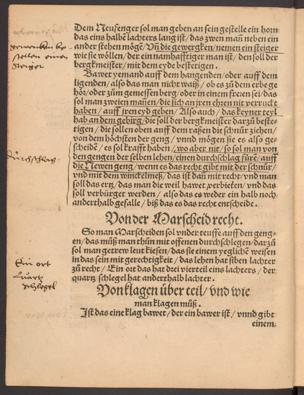 Dem Neufenger sol man geben an sein gestelle ein horn
das eine halbe lachters lang ist / das zwen man neben ein
ander stehen mögē / Vñ die gewercken / nemen ein steiger
wie sie wöllen / der ein namhafftiger man ist / den sol der
bergkmeister / mit dem eyde bestetigen.
Bawet yemand auff dem hangenden / oder auff dem
ligenden / also das man nicht waiß / ob es zu dem erbe ge
hör / oder zum gemessen berg / oder in einem frembden sei / das
sol man zweien mañen / die sich an jren ehren nit verruckt
haben / auff jren eyd geben / Also auch / das keyner teyl
hab an dem gebirg / die sol der bergkmeister dar zu beste-
tigen / die sollen oben auff dem rasen die schnür ziehen /
von dem höchsten der geng / vnnd mögen sie es also ge-
scheidē / es sol krafft haben / wo aber nit / so sol man von
den gengen der selben lehen / einen durchschlag fürē / auff
die Newen geng / wenn es das recht gibt mit der schnür /
vnd mit dem winckelmeß / das ist daß mit recht / vnd man
sol das erz / das man die weil hawet / verbieten / vnd das
sol verbürget werden / also das es weder ein halb noch
anderhalb gefalle / biß das es das recht entscheide.
Von der Marscheid recht.
So man Marscheiden sol vnder teuffe auff den geng-
en / das můß man thůn mit offenen durchschlegen / dar zů
sol man getrew leut kiesen / das sie einem yeglichē weisen
in das sein mit gerechtigkeit / das lehen hat siben lachter
zů recht / Ein ort das hat drei vierteil eins lachters / der
quartz schlegel hat anderhalb lachter.
Von klagen über teil / vnd wie
man klagen můß.
Ist das eine klag hawet / der ein hawer ist / vnnd gibt
einem
Durchschlag
Ein ort